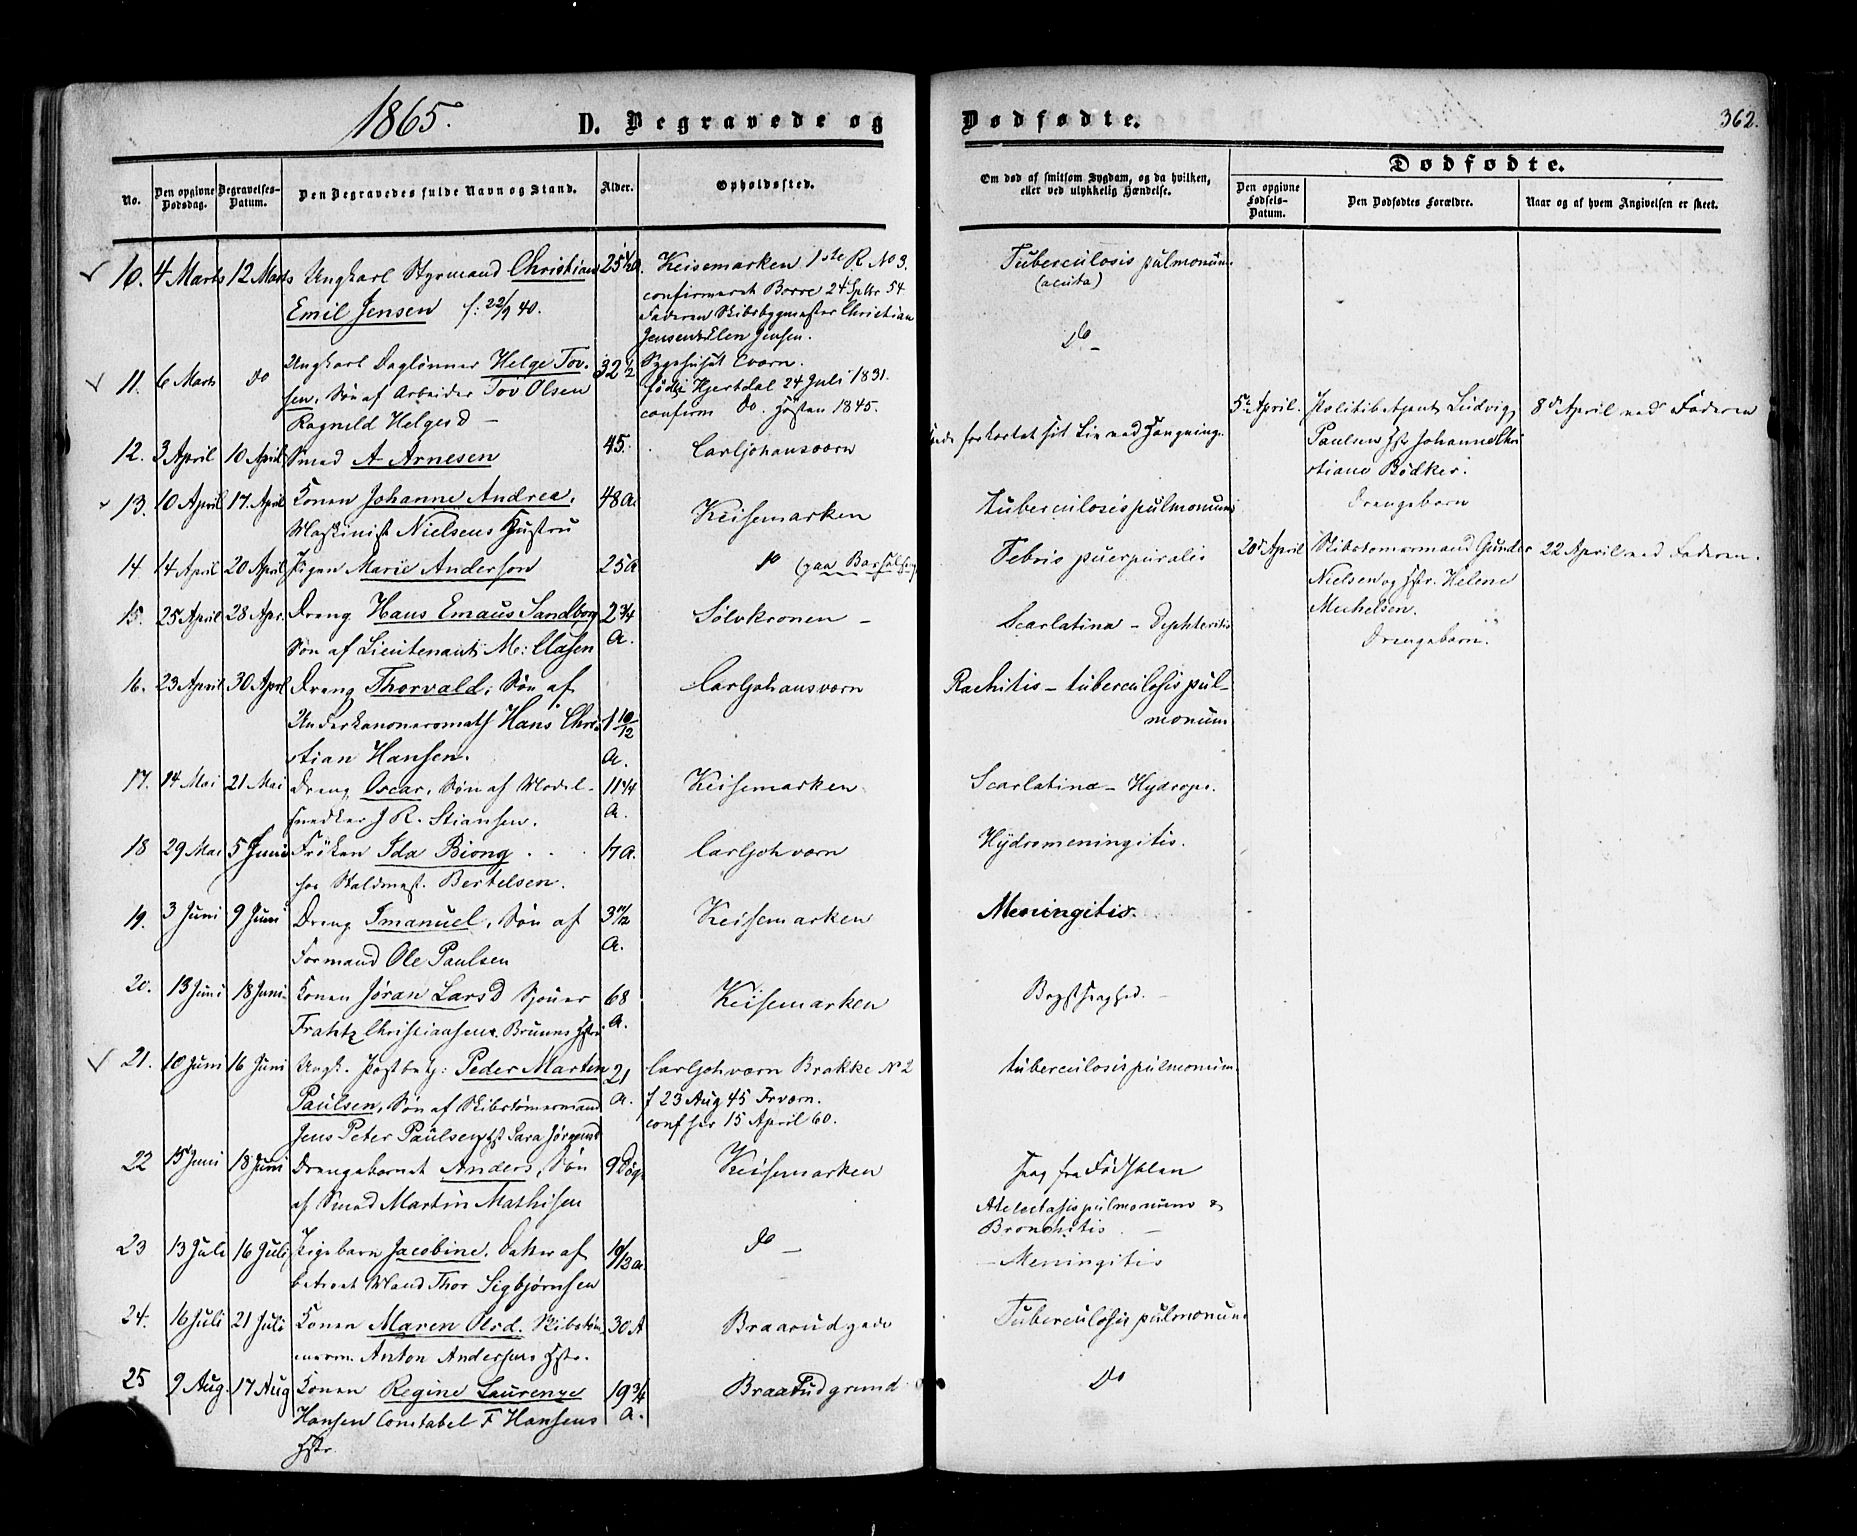 1865.
D. Begravede og
Dødfødte.
362.
No.
Den opgivne Dødsdag.
Begravelses-Datum.
Den Begravedes fulde Navn og Stand.
Alder.
Opholdssted.
Om død af smitsom Sygdom, og da hvilken,
eller ved ulykkelig Hændelse.
Dødfødte.
Den opgivne Fødsels-Datum.
Den Dødfødtes Forældre.
Naar og af hvem Angivelsen er skeet.
10. 4 Marts 12 Marts Ungkarl Styrmand Christian 25 Keisemarken 1ste R. No 3. Tuberculosis pulmonum
Emil Jensen f: 22/9 40. confirmeret Borre 24 Sptbr 54 (acuta)
Faderen Skibsbygmester Christian
Jensen Elen Jensen.
11. 6 Marts do Ungkarl Daglønner Helge Tov- 32 1/2 Sygehuset Cværn. do
sen, Søn af Arbeider Tov Olsen født Hjertdal 24 Juli 1831.
Ragnild Helgesd - confirm do. Høsten 1845.
12. 3 April 10 April Smed A Arnesen 45. Carljohansværn forkortet sit Liv ved Hængning.
5te April. Politibetjent Ludvig 8de April ved Faderen
Paulsen Hst Johanne Chri
stiane Bödker.
Drengebarn
13. 10 April 17. April Konen Johanne Andrea, 48 a. Keisemarken tuberculosis pulmonum
Maskinist Nielsens Hustru
14 14 April 20 April Pigen Marie Anderson 25 a do (paa Barselseng Febris puerpuralis
20de April Skibstømermand Gunder 22 April ved Faderen.
Nielsen og Hstr. Helene
Michelsen.
Drengebarn.
15. 25 April 28 Apr. Dreng Hans Emaus Sandborg 2 3/4 Sølvkronen - Scarlatina - Dyphteritis
Søn af Lieutenant M: Clasen a.
16. 23 April 30 April Dreng Thorvald, Søn af Carljohansværn Rachitis - tuberculosis pul-
Underkanoneromats Hans Chri- 1 10/12 monum
stian Hansen. a.
17. 14 Mai 21 Mai Dreng Oscar, Søn af Model- 11 1/4 Keisemarken Scarlatina - Hydrops.
snedker J R. Stiansen. a.
18 29 Mai 5 Juni Frøken Ida Biong 17 a. Carljoh værn Hydromeningitis.
hos Skaldmest. Bertelsen.
19. 3 Juni 9 Juni Dreng Imanuel, Søn af 3 1/2 Keisemarken Meningitis.
Formand Ole Paulsen a.
20. 13 Juni 18 Juni Konen Jøran Larsd Sjouer 68 Keisemarken Brystsvaghed. -
Frantz Christiansen Bruuns Hstr. a.
21. 10 Juni 16 Juni Ungk. Postbetj: Peder Martin 21 Carljohværn Brakke No 2 tuberculosis pulmonum.
Paulsen, Søn af Skibstømermand a. f 23 Aug 45 Frværn.
Jens Peter Paulsen Hst Sara Jørgensd conf her 15 April 60.
22 15 Juni 18 Juni Drengebarnet Anders, Søn 9 Døg Keisemarken svag fra Födselen
af Smed Martin Mathisen Atelectasis pulmonum &
Bronchitis. -
23 13 Juli 16 Juli Pigebarn Jacobine, Datter af 10/12 a. do - - Meningitis
betroet Mand Thor Sigbjørnsen
24. 16 Juli 21 Juli Konen Maren Olsd. Skibstøm 30 A Braarudgade Tuberculosis pulmonum
merm. Anton Andersens Hstr.
25 9 Aug. 17 Aug Konen Regine Laurenze 19 3/4 Braarudgrund do
Hansen Constabel F Hansens a.
Hstr